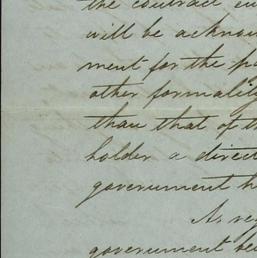 the contract en
will be acknow
ment for the pa
other formality
than that of th
holder a direct
government h
As re
government be